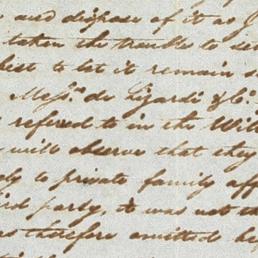 and dispose of it as I
taken the trouble to se
best to let it remain s
Messrs. de Lizardi & Co.
referred to in the Will
will observe that they
ly to private family aff
ird party, it was not th
as therefore omitted be